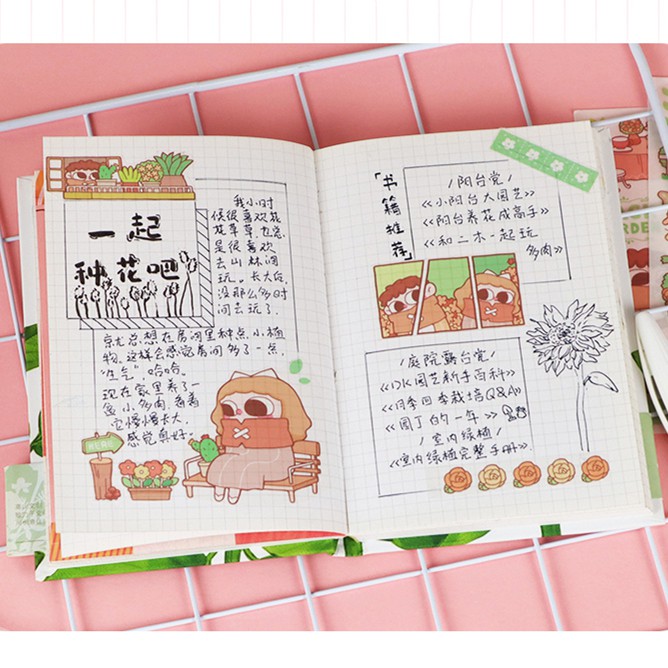 一起
种花吧
我小时
候很喜欢花
花草草,也总
是很喜欢
去山林间
玩。长大后
没那么多时
间去玩了.
就总想在房间里种点小植
物.这样会感觉房间多了一点
"生气",哈哈。
现在家里养了一
盆小多肉,看着
它慢慢长大,
感觉真好。
「书籍推荐」
/阳台党/
《小阳台大园艺》
《阳台养花成高手》
《和二木一起玩
多肉》
/庭院露台党/
《DK园艺新手百科》
《月季四季栽培Q&A》
《园丁的一年》
/室内绿植/
《室内绿植完整手册》
RDE